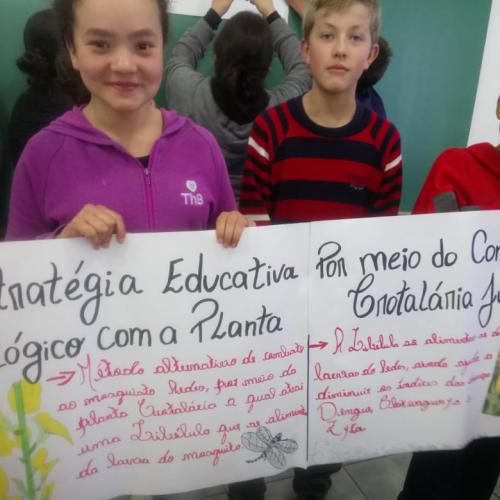 ThB
tratégia Educativa
lógico com a Planta
→ Método alternativo de combate
ao mosquito Aedes, por meio da
planta Crotalária a qual atrai
uma Libélula que se alimenta
da larva do mosquito.
Por meio do Con
Crotalánia Ju
→ A Libélula se alimenta
larvas do Aedes,
diminuir os índices das
Dengue, Chikungunya e
Zyka